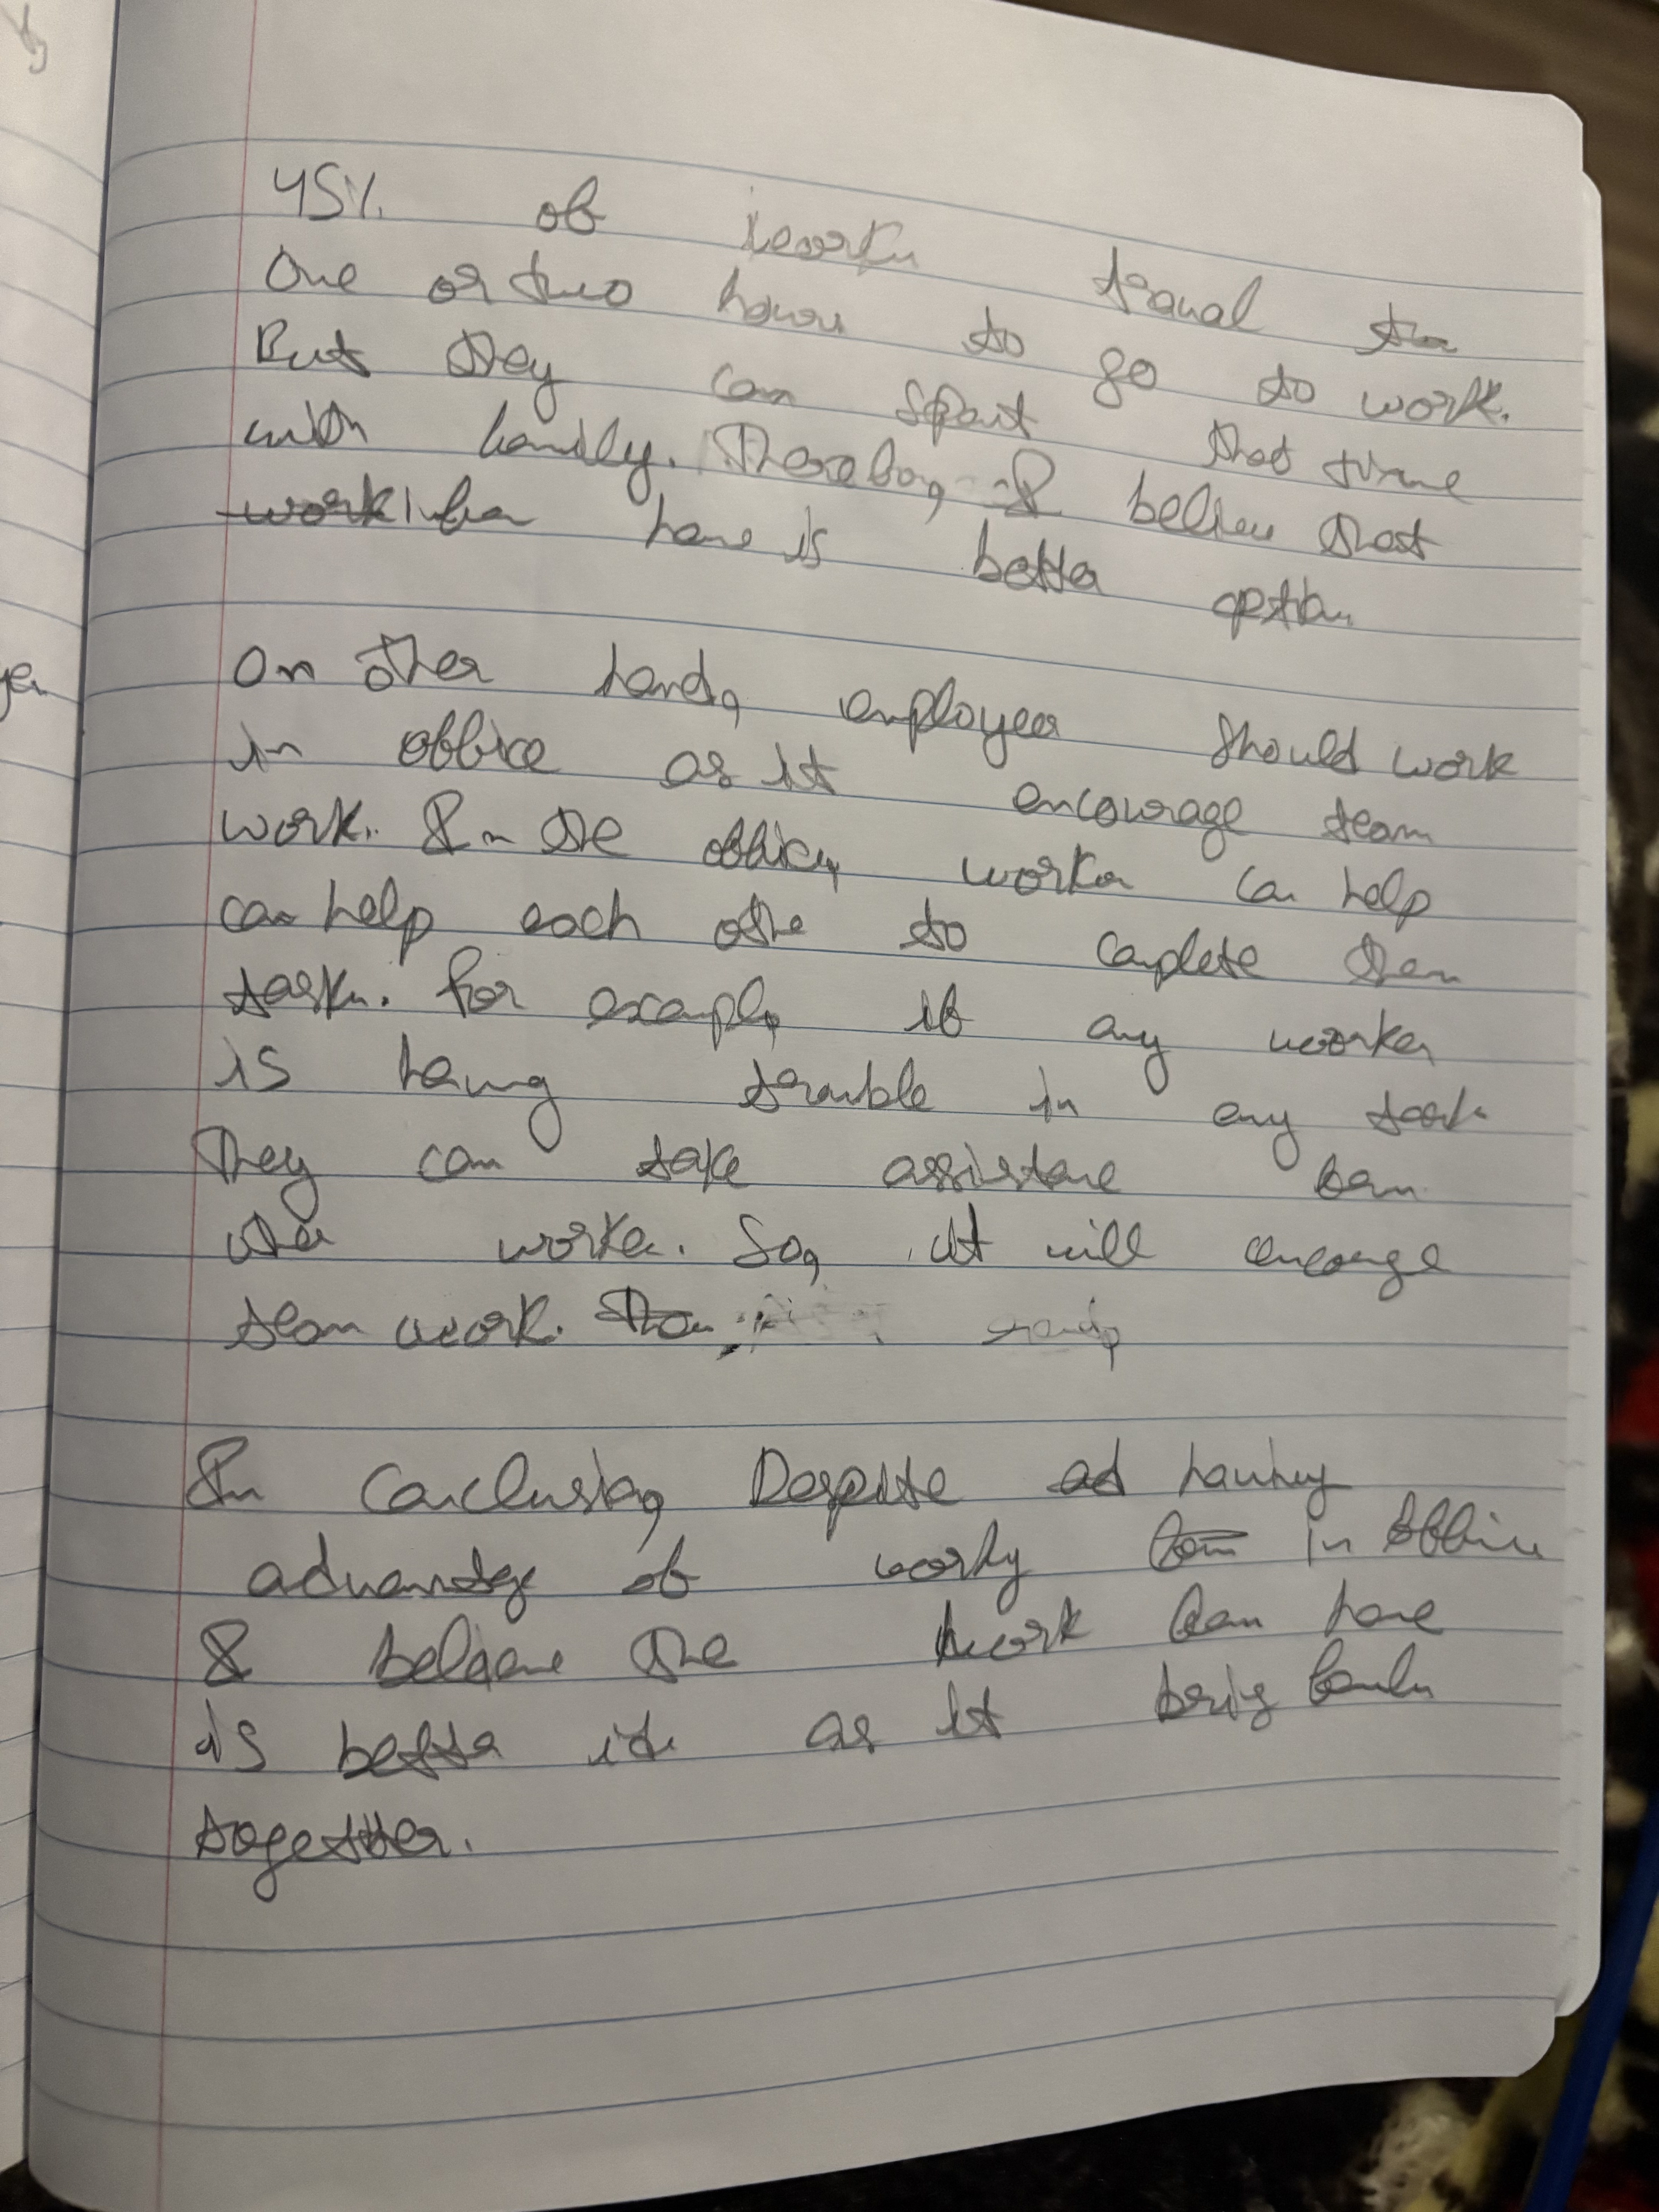 45% of workers travel
One or two hours to go to work.
But they can spent that time
with family. Therefore, I believe that
work home is better option.
On other hand, employees should work
in office as it encourage team
work. In the office, worker can help
can help each othe to complete their
tasks. For example, if any worker
is having trouble in any task
They can take assistane from
other worker. So, it will encourage
team work.
In Conclusion, Despite ad having
advantage of working in office
I believe the work from home
is better as it bring family
together.